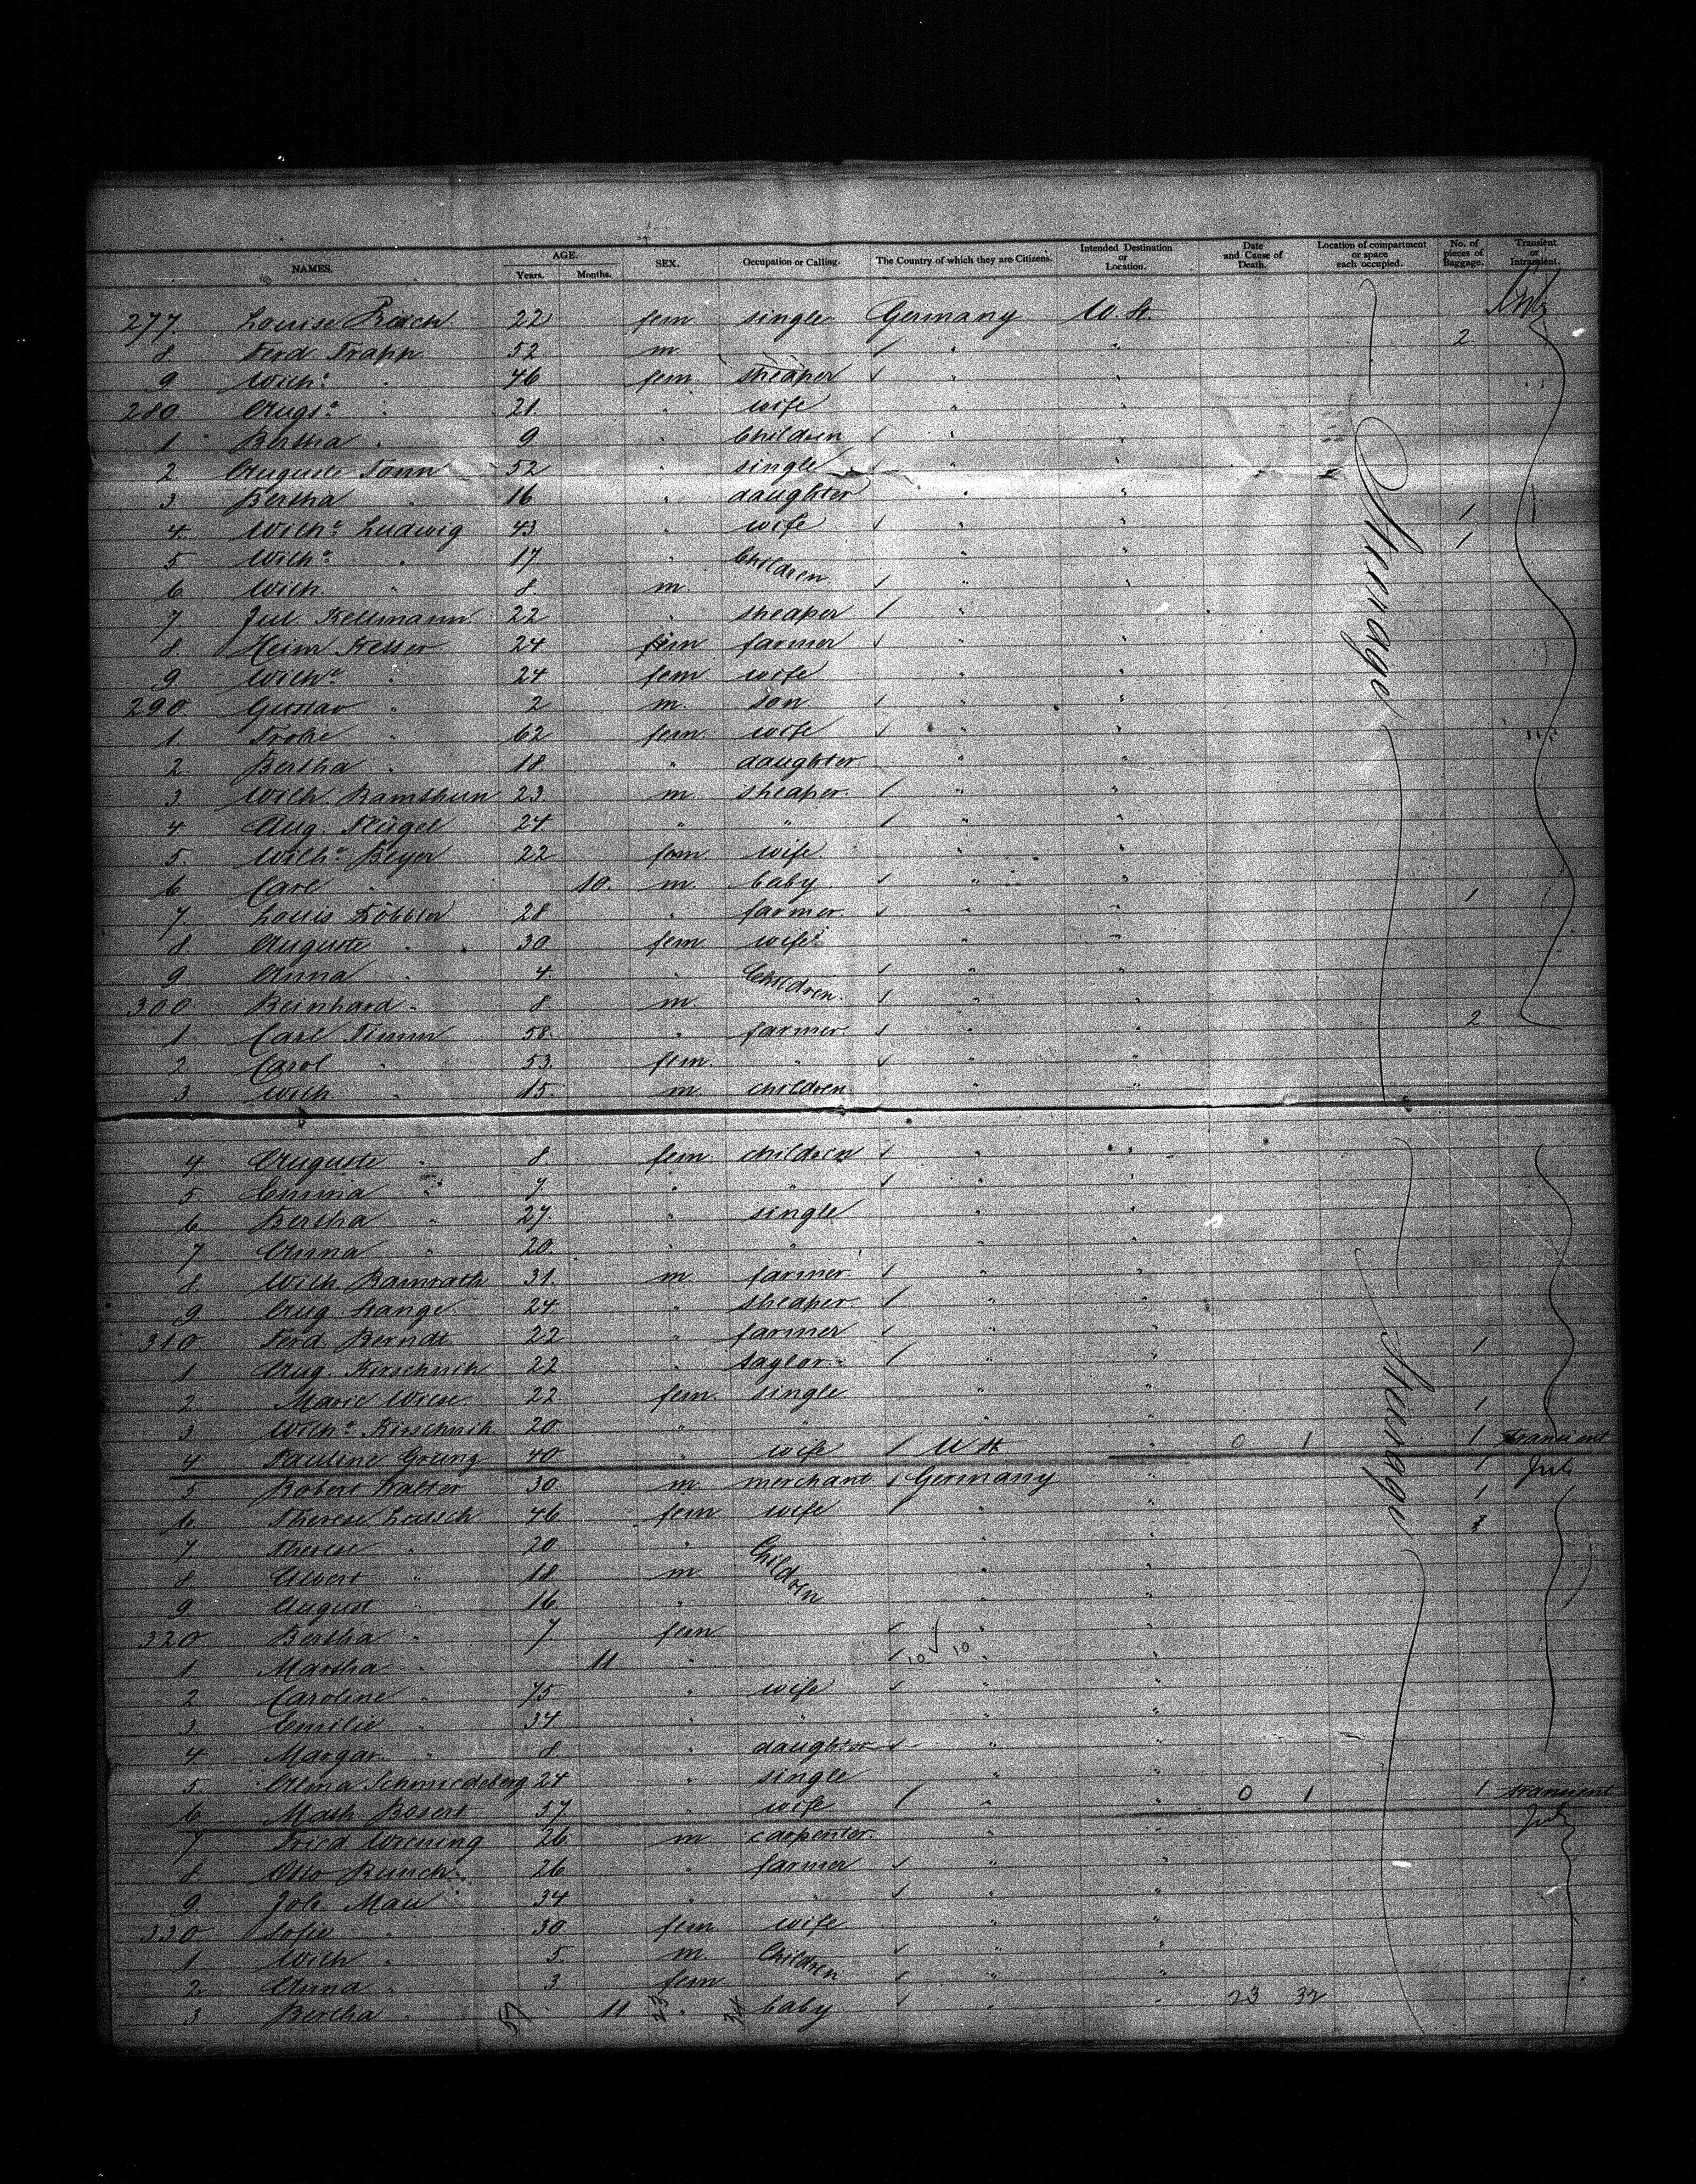 NAMES. AGE. Years. Months. SEX. Occupation or Calling. The Country of which they are Citizens. Intended Destination or Location. Date and Cause of Death. Location of compartment or space each occupied. No. of pieces of Baggage. Transient or Intransient.
277. Louise Reich 22 fem single Germany U. St.
8 Ferd. Trapp 52 m " " 2
9 Wilhe " 46 fem " "
280 Augte " 21 " wife " "
1 Bertha " 9 " Children " "
2 Auguste Tonn 52 " single " "
3 Bertha " 16 " daughter " "
4 Wilhe Ludwig 43 " wife " " 1
5 Wilhe " 17 " Children " " 1
6 Wilh. " 8 m " "
7 Jul. Kellmann 22 " sheaper " "
8 Heinr. Kesser 24 farmer " "
9 Wilhe " 24 fem wife " "
290 Gustav " 2 m. son " "
1 " 62 fem wife " "
2 Bertha " 18 " daughter " "
3 Wilh. Ramthun 23 m sheaper " "
4 Aug. Flügel 24 " " " "
5 Wilhe Beyer 22 fem wife " "
6 Carl " 10. m. baby " "
7 Louis Köbbler 28 " farmer " " 1
8 Auguste " 30 fem wife " "
9 Anna " 4 " Children " "
300 Reinhard " 8 m " "
1 Carl Timm 58. " farmer " " 2
2 Carol " 53. fem. " " "
3 Wilh " 15 m children " "
Steerage
4 Auguste " 8 fem children " "
5 Emma " 7 " " " "
6 Bertha " 27. " single " "
7 Anna " 20. " " " "
8 Wilh Ramrath 31. m farmer " "
9 Aug. Lange 24 " sheaper " "
310 Ferd. Berndt 22 " farmer " "
1 Aug. Kirschnik 22 " taylor " " 1
2 Marie Wiese 22 fem. single " "
3 Wilhe Kirschnik 20 " " " " 1
4 Pauline 40 " wife U St " 0 1 1 transient
5 Robert Walter 30 m merchant Germany " 1
6 Therese Lutsch 46 fem wife " " 1
7 Therese " 20 " Children " "
8 Albert " 18 m " "
9 August " 16 " " "
320 Bertha " 7 fem " "
1 Martha " 11 " 10 10 " "
2 Caroline " 75 " wife " "
3 Emilie " 34 " " " "
4 Margar. " 8 " daughter " "
5 Alma Schmiedeberg 24 " single " "
6 Math Bosert 57 " wife " " 0 1 1 transient
7 Fried Wiening 26 m carpenter " "
8 Otto Bunch 26 " farmer " "
9 Joh. Mau 34 " " " "
330 Sofie " 30 fem wife " "
1 Wilh " 5 m. Children " "
2 Anna " 3 fem " "
3 Bertha " 11 " baby " " 23 32
57 23 34
Steerage